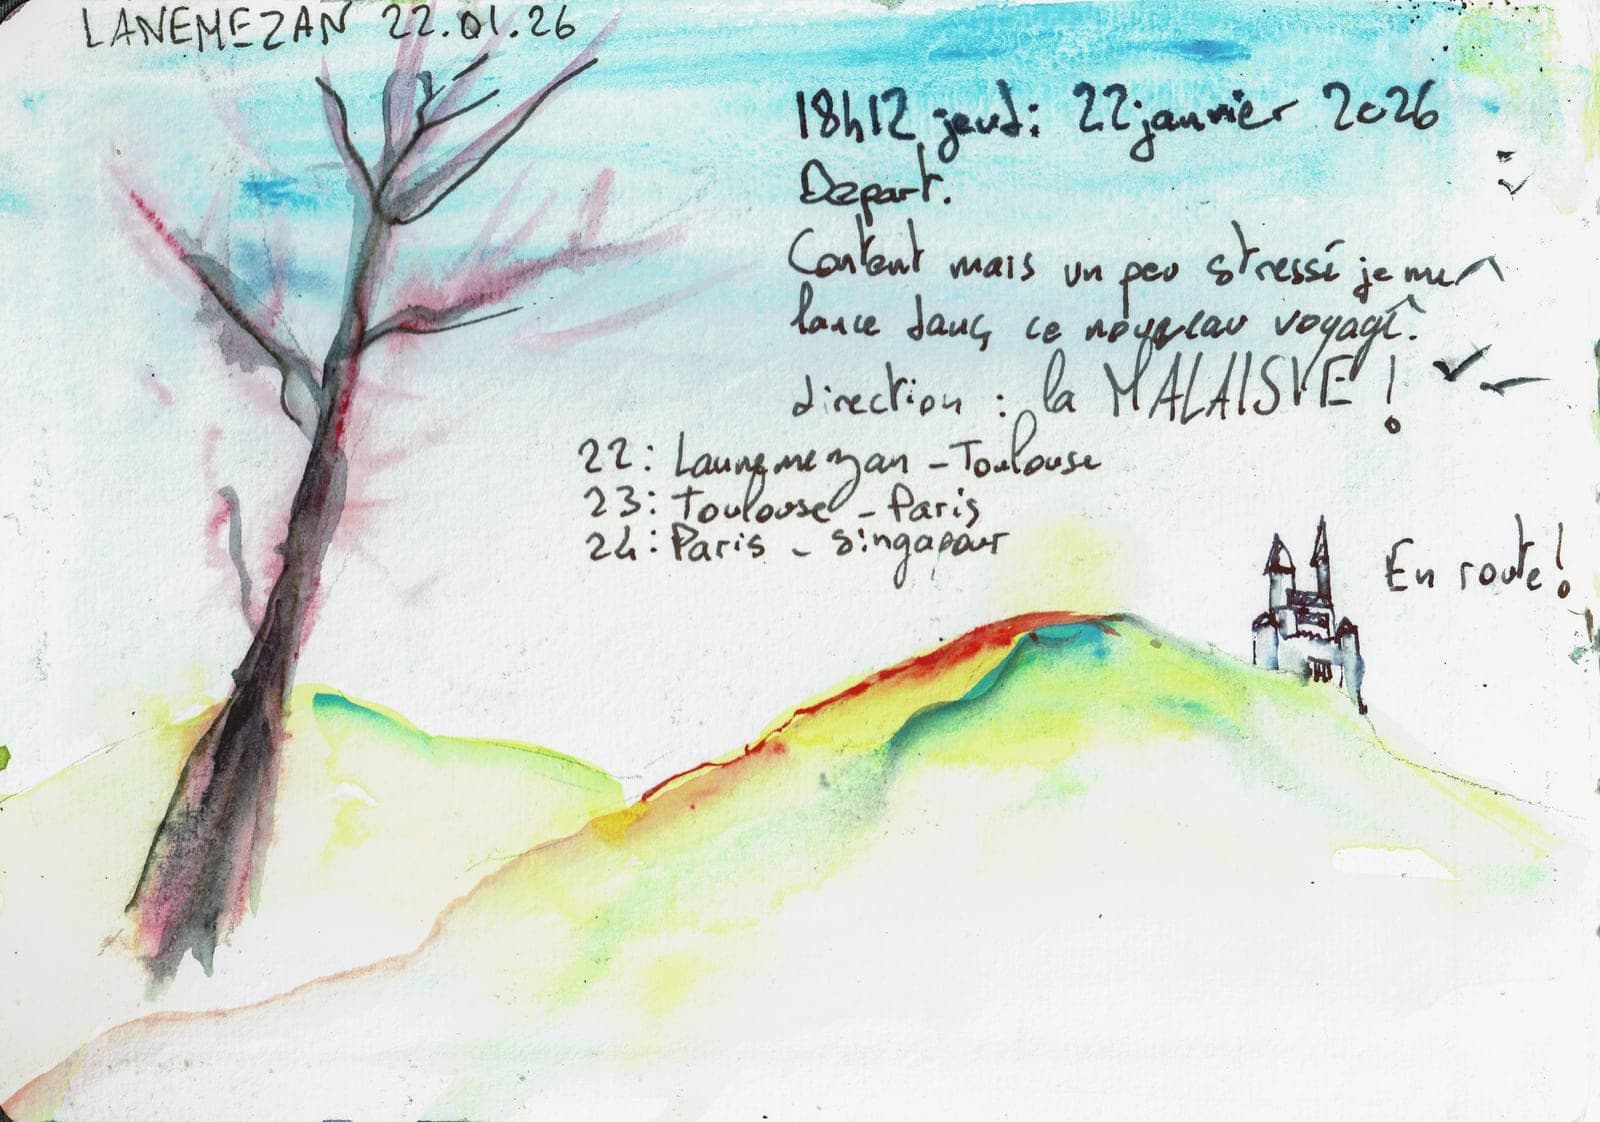 LANEMEZAN 22.01.26
18h12 jeudi 22 janvier 2026
Depart.
Content mais un peu stressé je me
lance dans ce nouveau voyage.
direction : la MALAISIE !
22: Lannemezan - Toulouse
23: Toulouse - Paris
24: Paris - Singapour
En route!